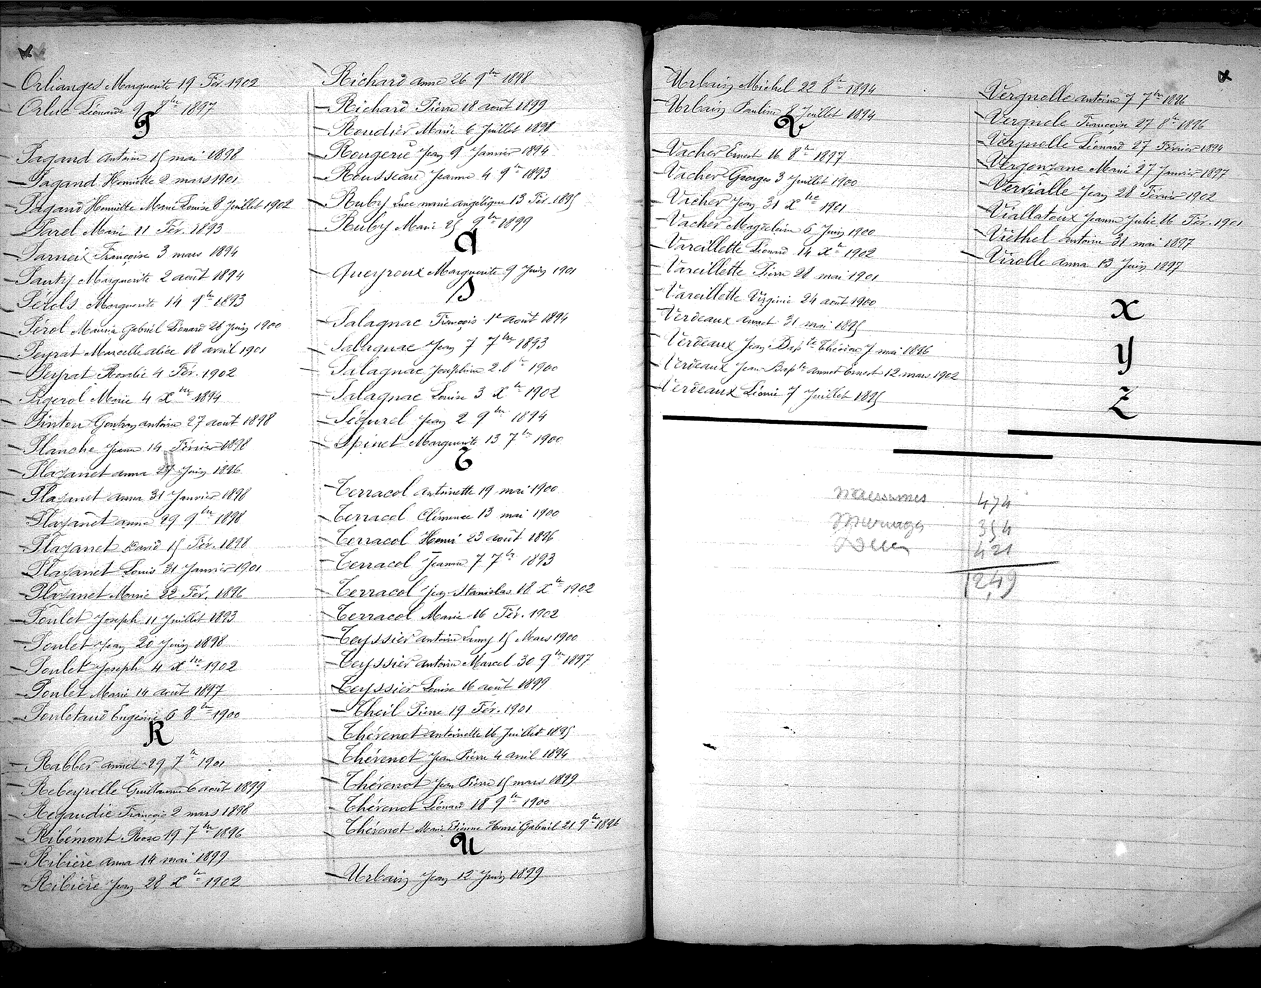 Orliange Marguerite 19 Fév. 1902
Orluc Léonaire 9 8bre 1897
P
Pagand Antoine 15 mai 1898
Pagand Henriette 2 mars 1901
Pagand Henriette Marie Louise 8 Juillet 1902
Parel Marie 11 Fév. 1893
Parneix Françoise 3 mars 1894
Pauty Marguerite 2 août 1894
Pérols Marguerite 14 9bre 1893
Pérol Maurice Gabriel Léonard 26 Juin 1900
Peyrat Marcelle alice 18 avril 1901
Peyrat Rosalie 4 Fév. 1902
Pigerol Marie 4 Xbre 1894
Pinton Gontran antoine 27 août 1898
Planche Jeanne 14 Février 1898
Plazanet anna 27 Juin 1896
Plazanet anna 31 Janvier 1898
Plazanet anna 29 9bre 1898
Plazanet David 15 Fév. 1898
Plazanet Louis 31 Janvier 1901
Plazanet Marie 22 Fév. 1896
Poulet Joseph 11 Juillet 1893
Poulet Jean 20 Juin 1898
Poulet Joseph 4 Xbre 1902
Poulet Marie 14 août 1897
Pouletaud Eugénie 6 8bre 1900
R
Rabber annet 29 7bre 1901
Rebeyrolle Guillaume 6 août 1899
Regaudie François 2 mars 1898
Ribémont Rose 19 7bre 1896
Ribière anna 14 mai 1899
Ribière Jean 28 Xbre 1902
Richard anna 26 9bre 1898
Richard Pierre 18 août 1899
Roudier Marie 6 Juillet 1898
Rougerie Jean 9 Janvier 1894
Rousseau Jeanne 4 9bre 1893
Ruby Luce marie angélique 13 Fév. 1895
Ruby Marie 25 9bre 1899
Q
Queyroux Marguerite 9 Juin 1901
S
Salagnac François 1er août 1894
Salagnac Jean 7 7bre 1893
Salagnac Joséphine 2 8bre 1900
Salagnac Louise 3 Xbre 1902
Ségurel Jean 2 9bre 1894
Spinet Marguerite 13 7bre 1900
T
Terracol Antoinette 19 mai 1900
Terracol Clémence 13 mai 1900
Terracol Henri 23 août 1896
Terracol Jeanne 7 7bre 1893
Terracol Jean Stanislas 18 Xbre 1902
Terracol Marie 16 Fév. 1902
Teyssier antoine 15 Mars 1900
Teyssier antoine Marcel 30 9bre 1897
Teyssier Louise 16 août 1899
Theil Pierre 19 Fév. 1901
Thévenot Antoinette 16 Juillet 1895
Thévenot Jean Pierre 4 avril 1894
Thévenot Jean Pierre 15 mars 1899
Thévenot Léonard 18 9bre 1900
Thévenot Marie Etienne Henri Gabriel 21 9bre 1896
U
Urbain Jean 12 Juin 1899
Urbain Michel 22 8bre 1894
Urbain Pauline 8 Juillet 1894
V
Vacher Ernest 16 8bre 1897
Vacher Georges 3 Juillet 1900
Vacher Jean 31 Xbre 1901
Vacher Magdeleine 6 Juin 1900
Vareillette Léonard 14 Xbre 1902
Vareillette Pierre 28 mai 1901
Vareillette Virginie 24 août 1900
Verdeaux annet 31 mai 1895
Verdeaux Jean Bapte Thérèse 7 mai 1896
Verdeaux Jean Bapte annet Ernest 12 mars 1902
Verdeaux Léonie 7 Juillet 1895
Vergnolle antoine 7 7bre 1896
Vergnole Françoise 27 8bre 1896
Vergnolle Léonard 27 Février 1894
Vergonzane Marie 27 Janvier 1897
Vervialle Jean 28 Février 1902
Viallatoux Jeanne Julie 16 Fév. 1901
Viethel antoine 31 mai 1897
Virolle anna 13 Juin 1897
X
Y
Z
Naissances 474
Mariages 354
Décès 421
1249